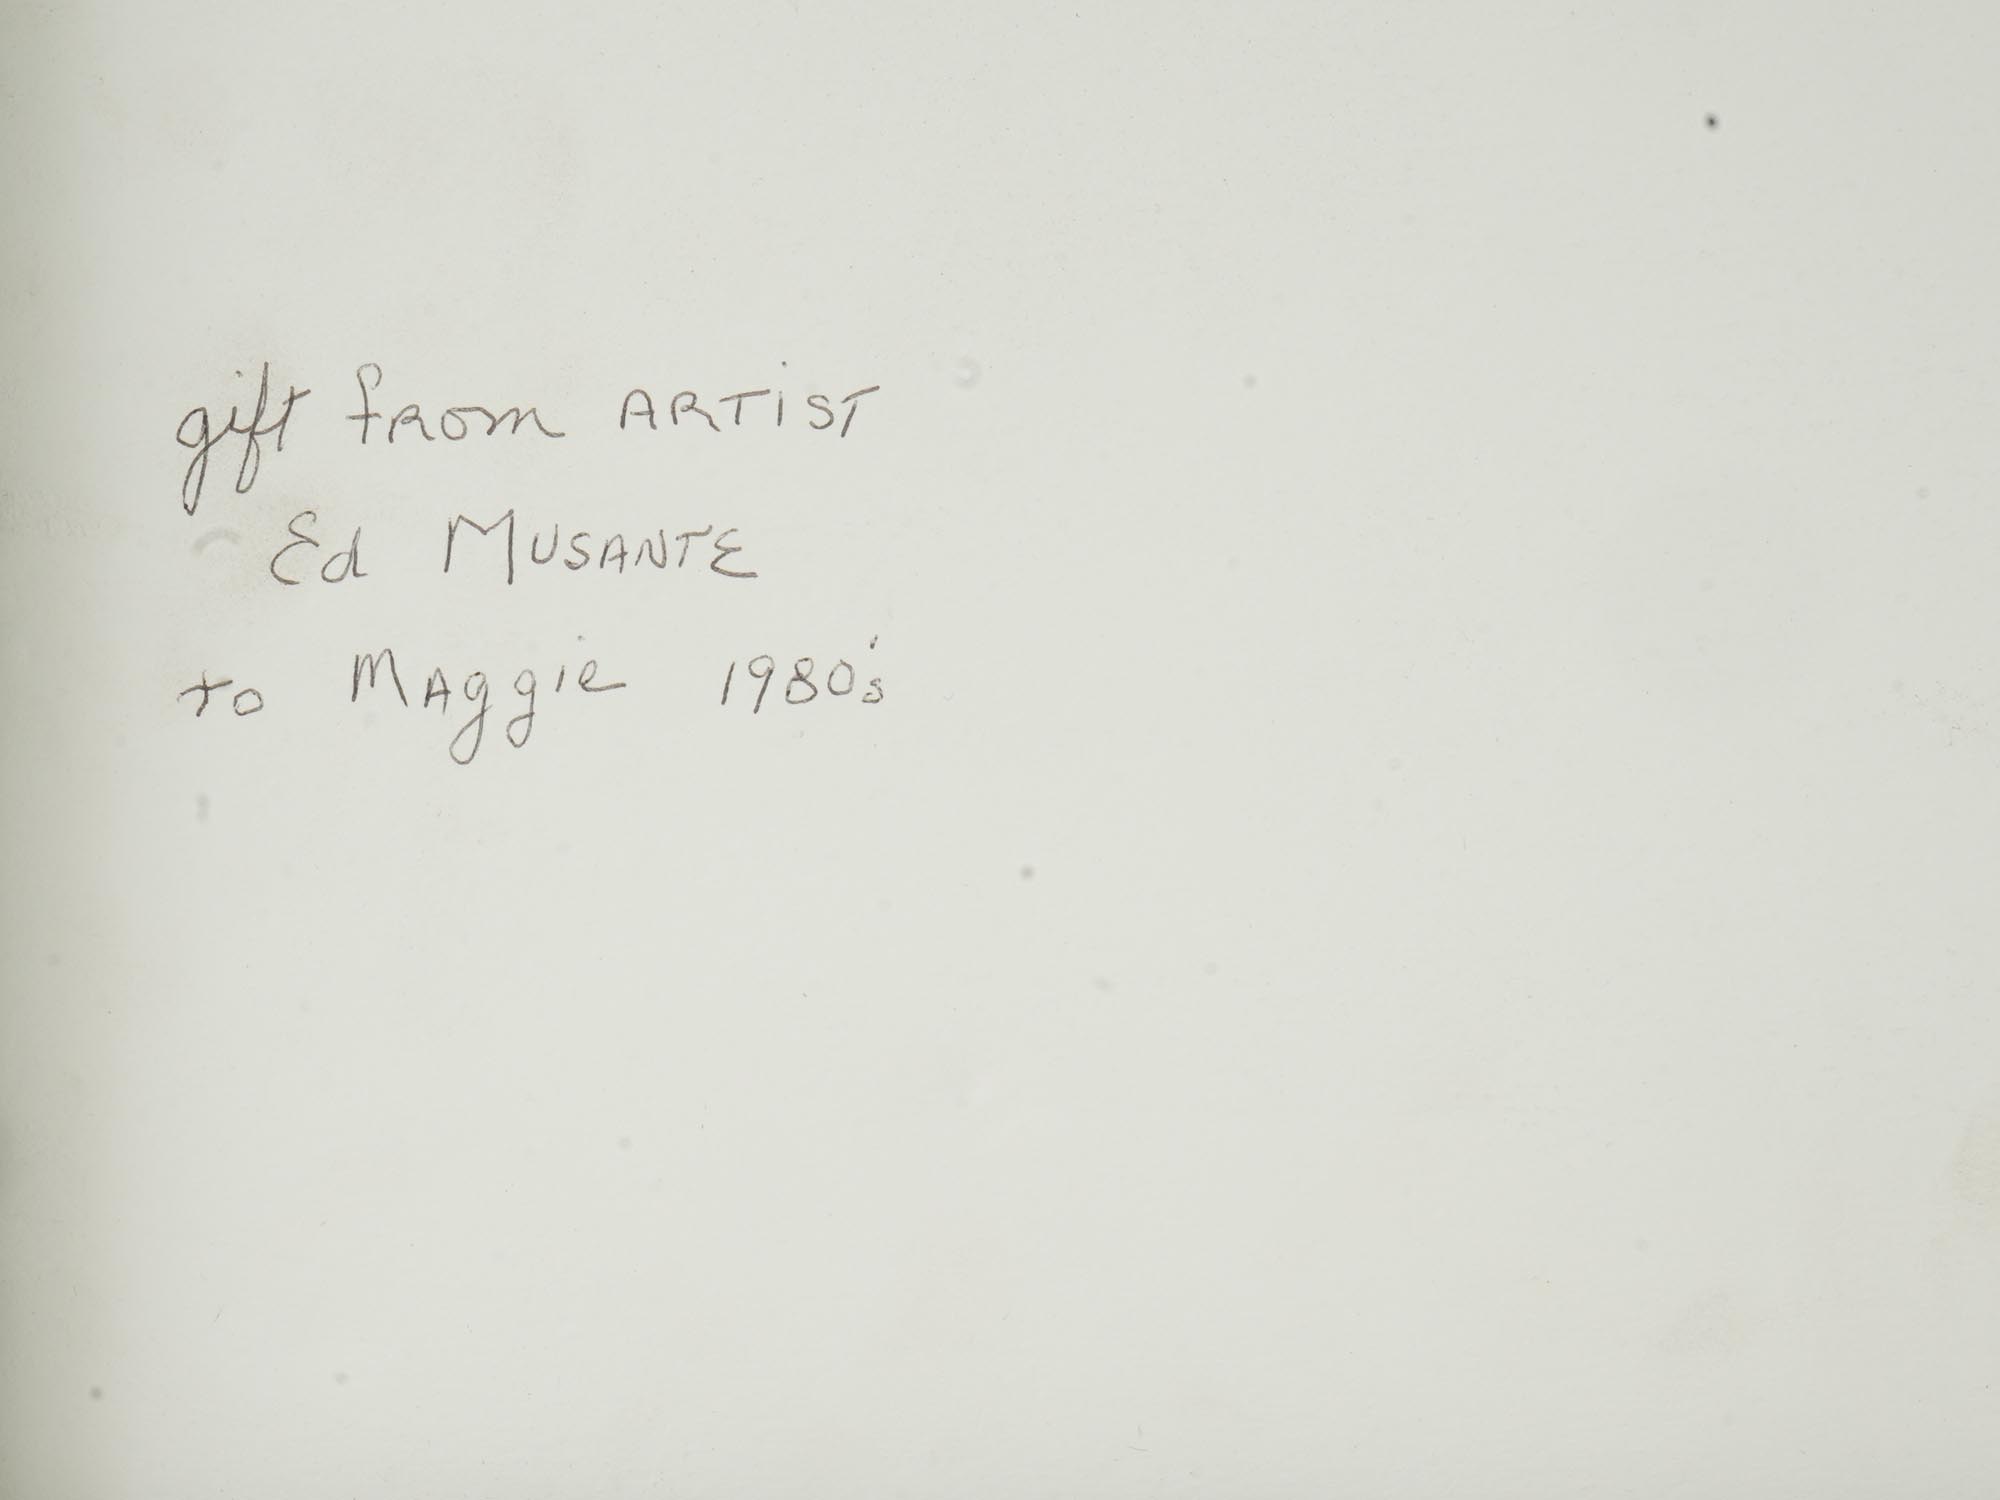 gift from ARTiST
Ed MUSANTE
to MAggie 1980's